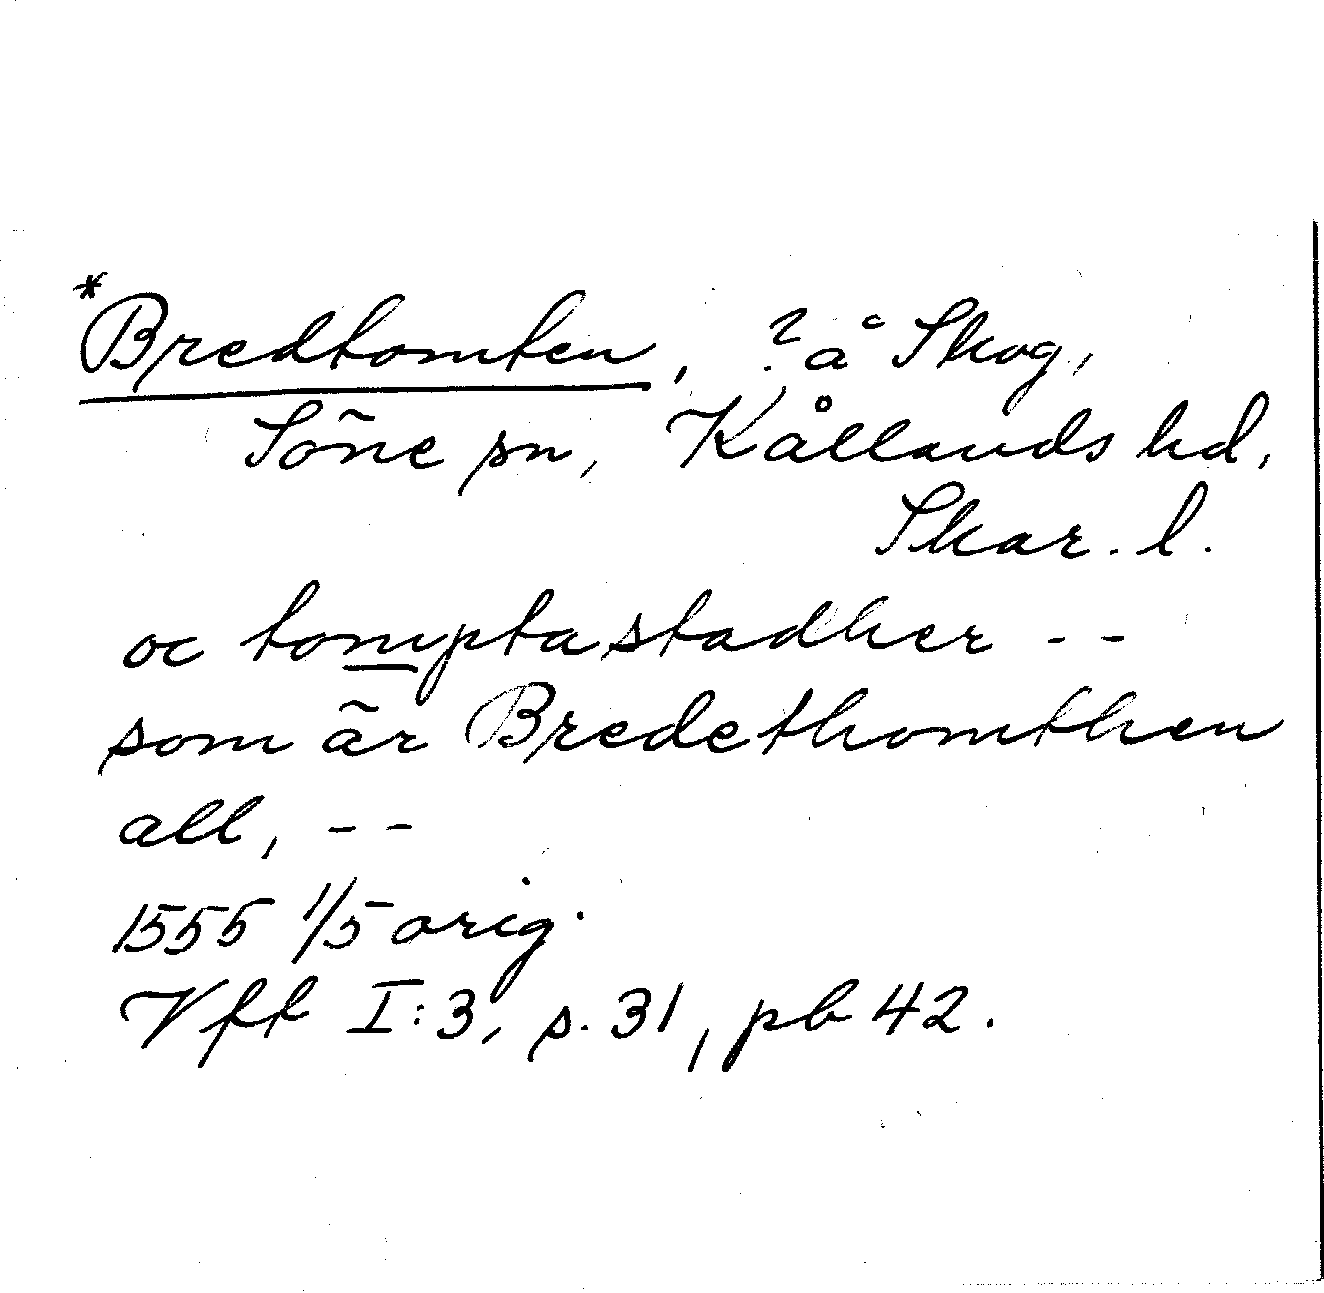 *Bredtomten, ? å Skog,
Söne sn, Kållands hd,
Skar. l.
oc tomptastadher - -
som är Bredethomthen
all, - -
1555 1/5 orig.
Vff I:3, s. 31, pb 42.